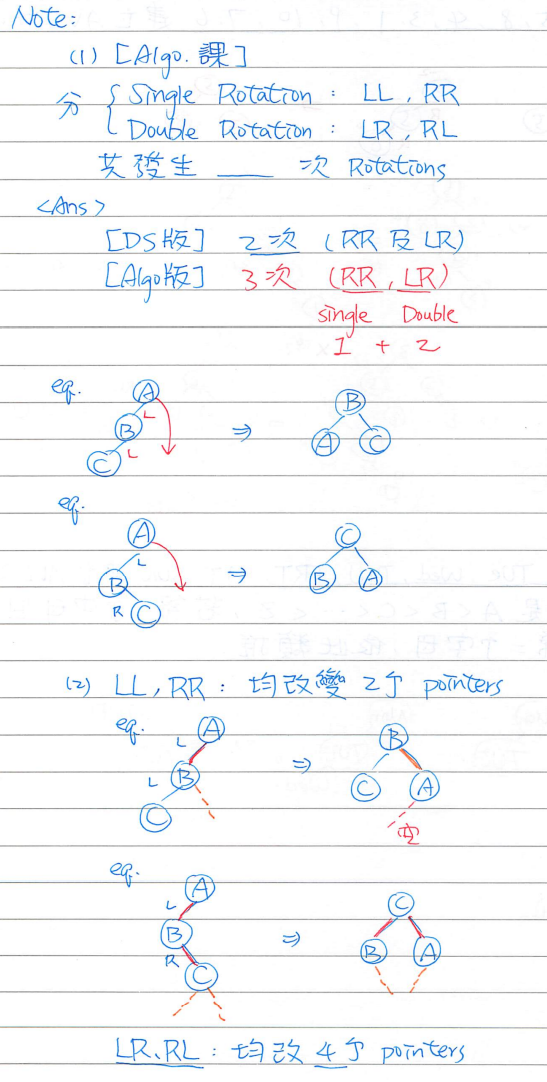 Note:
(1) [Algo. 課]
分 { Single Rotation : LL, RR
Double Rotation : LR, RL
共發生 ___ 次 Rotations
<Ans>
[DS版] 2次 (RR 及 LR)
[Algo版] 3次 (RR, LR)
single Double
1 + 2
eg.
A
L
B
L
C
⇒
B
A C
eg.
A
L
B
R C
⇒
C
B A
(2) LL, RR : 均改變 2个 pointers
eg.
A
L
B
L
C
⇒
B
C A
空
eg.
A
L
B
R
C
⇒
C
B A
LR、RL : 均改 4个 pointers